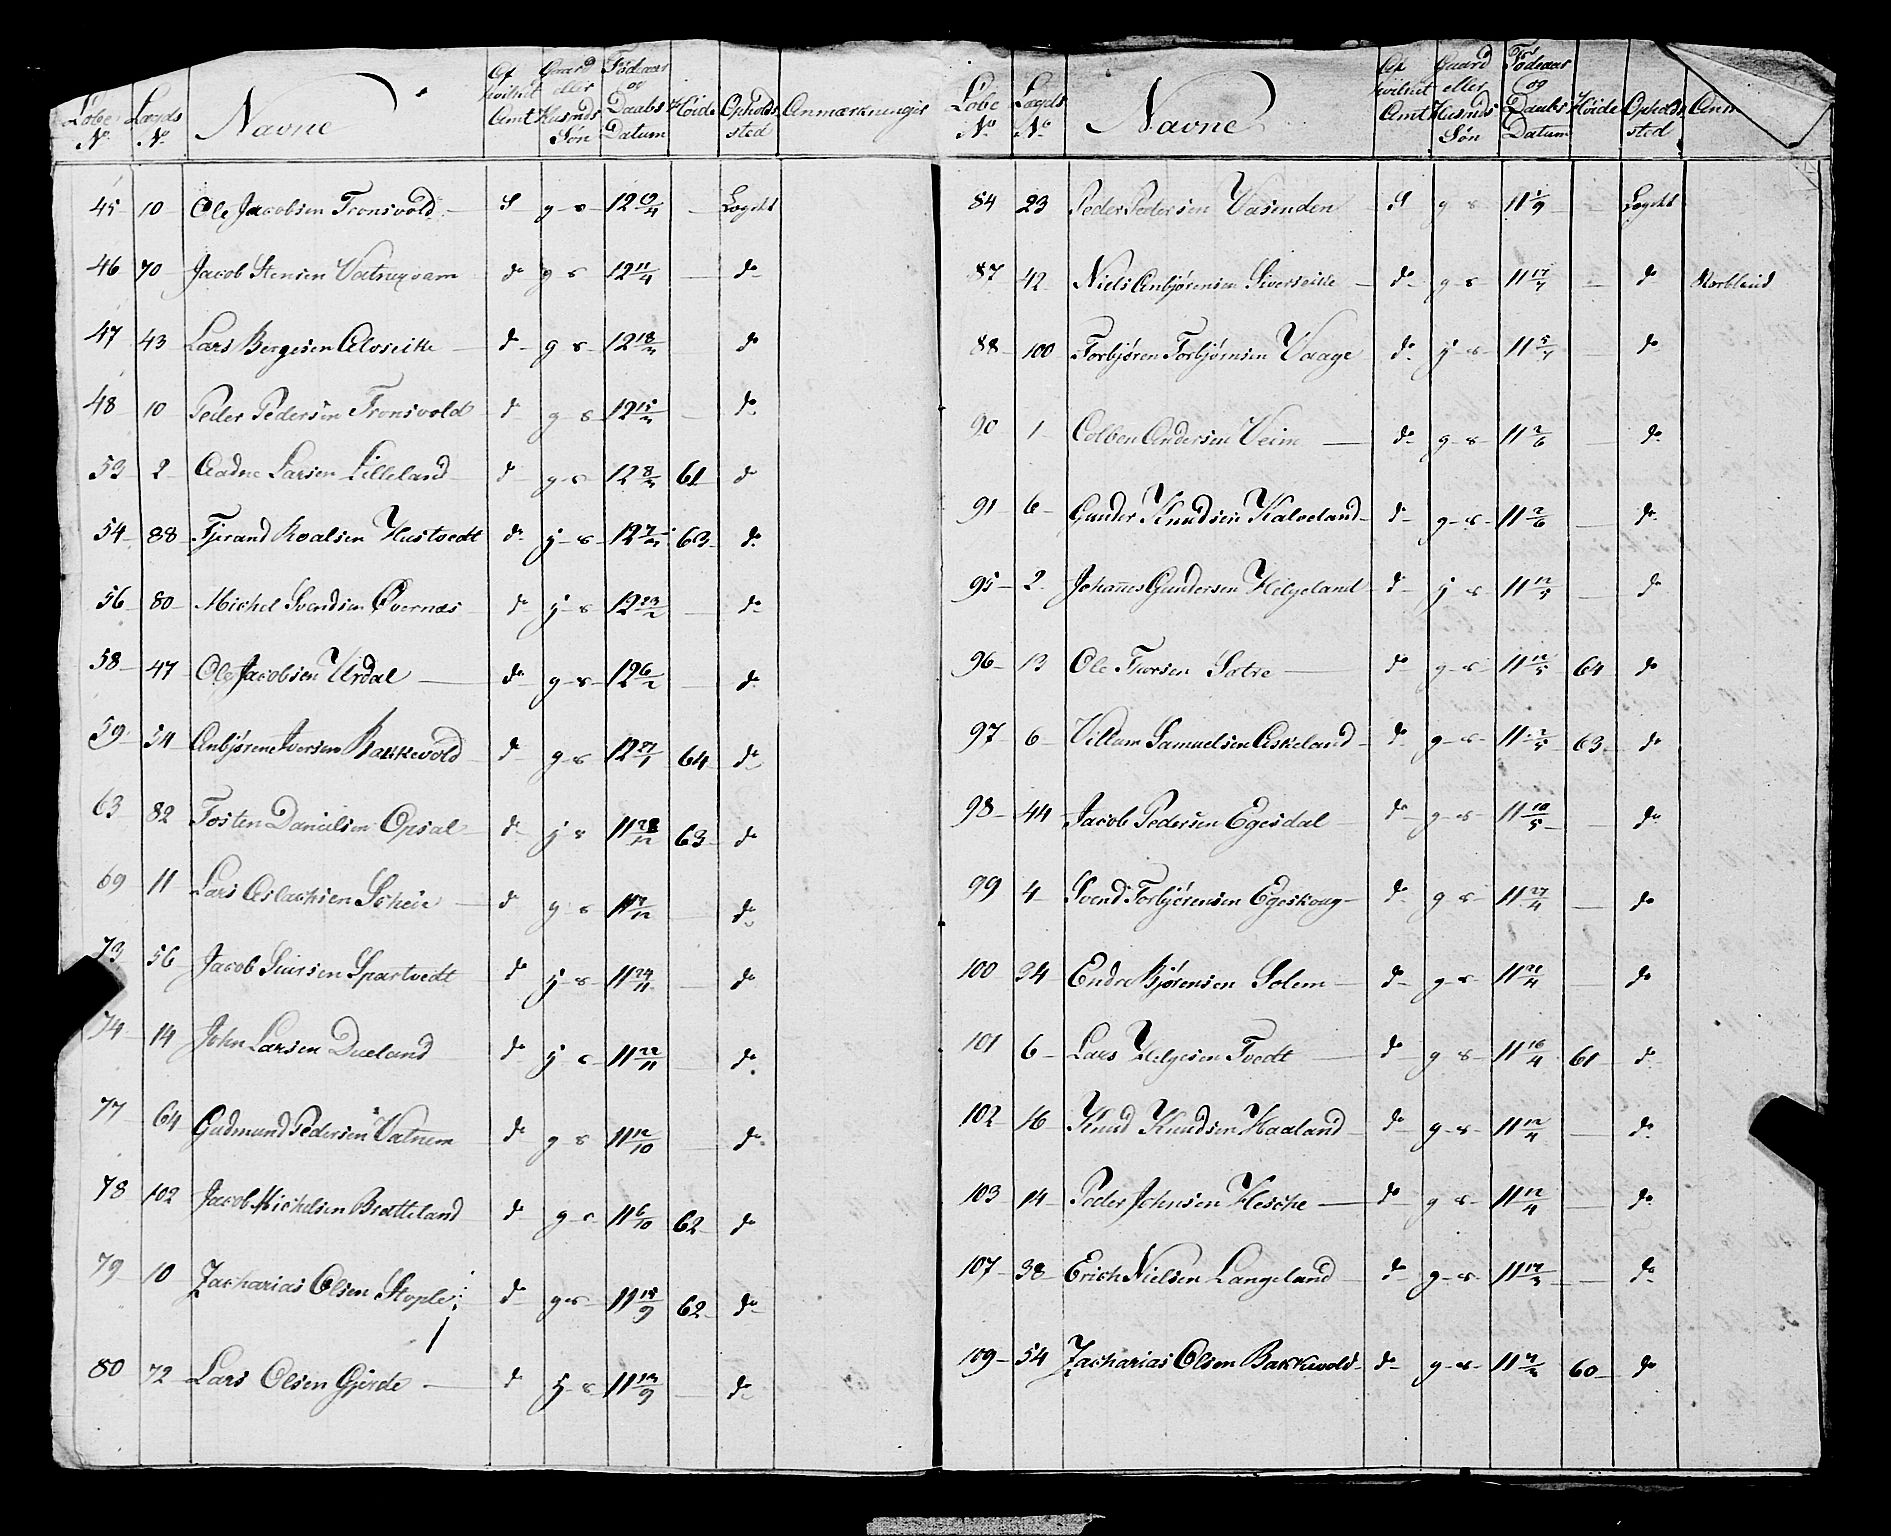 Løbe No. Lægds No. Navne Af hvilket Amt Gaard eller Husmds Søn Fødeaar og Daabs Datum Høide Opholds sted Anmærkninger
45 10 Ole Jacobsen Tronsvold S g s 12 4 Lægdet
46 70 Jacob Stensen do g s 12 11/4 do
47 43 Lars Bergesen do g s 12 18/3 do
48 10 Peder Pedersen Tronsvold do g s 12 15/3 do
53 2 Aadne Larsen Lilleland do g s 12 8/3 61 do
54 88 Tjerand Roalsen Hustvedt do j s 12 7/3 63 do
56 80 Michel Svendsen Øvernæs do j s 12 23/2 do
58 47 Ole Jacobsen Urdal do g s 12 6/2 do
59 54 Anbjøren Iversen Bakkevold do g s 12 27/1 64 do
63 82 Tosten Danielsen Opsal do j s 11 28/12 63 do
69 11 Lars Aslachsen Scheie do g s 11 7/12 do
73 56 Jacob Spartvedt do j s 11 24/11 do
74 14 John Larsen Dueland do j s 11 22/11 do
77 64 Gudmund Pedersen Vatnem do g s 11 12/10 do
78 102 Jacob Michelsen Bratteland do g s 11 6/10 62 do
79 10 Zacharias Olsen Stople do g s 11 15/9 62 do
80 72 Lars Olsen Gjerde do j s 11 9 do
Løbe No Lægds No Navne Af hvilket Amt Gaard eller Husmds Søn Fødeaar og Daabs Datum Høide Opholds sted Anm
84 23 Peder Pedersen Vasenden S g s 11 1/9 Lægdet
87 42 Niels Anbjørensen do g s 11 17/7 do Nærblind
88 100 Torbjøren Torbjørnsen Vaage do j s 11 5/7 do
90 1 Colben Andersen Veim do g s 11 2/6 do
91 6 Gunder Knudsen Kalveland do g s 11 2/6 do
95 2 Johannes Gundersen Helgeland do j s 11 12/5 do
96 13 Ole Thorsen Sætre do g s 11 12/5 64 do
97 6 Villum Samuelsen Askeland do g s 11 5 63 do
98 44 Jacob Pedersen Egesdal do g s 11 10/5 do
99 4 Svend Torbjørensen Egeskoug do g s 11 27/4 do
100 34 Endre Bjørensen Solem do g s 11 21/4 do
101 6 Lars Helgesen Tvedt do g s 11 16/4 61 do
102 16 Knud Knudsen Haaland do g s 11 12/4 do
103 14 Peder Johnsen Hesche do g s 11 12/4 do
107 38 Erich Nielsen Langeland do g s 11 17/3 do
109 54 Zacharias Olsen Bakkevold do g s 11 60 do